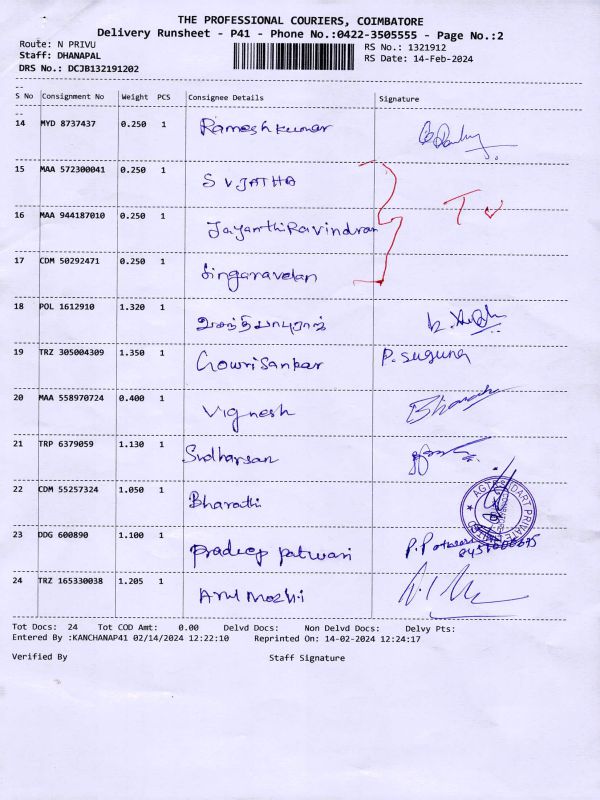 THE PROFESSIONAL COURIERS, COIMBATORE
Delivery Runsheet - P41 - Phone No.:0422-3505555 - Page No.:2
Route: N PRIVU
RS No.: 1321912
Staff: DHANAPAL
RS Date: 14-Feb-2024
DRS No.: DCJB132191202
S No Consignment No Weight PCS Consignee Details Signature
14 MYD 8737437 0.250 1 Rameshkumar
15 MAA 572300041 0.250 1 SUJATHA
16 MAA 944187010 0.250 1 Jayanthi Ravindran
17 CDM 50292471 0.250 1 Singaravelan
18 POL 1612910 1.320 1
19 TRZ 305004309 1.350 1 Gowrisankar P. Suguna
20 MAA 558970724 0.400 1 Vignesh
21 TRP 6379059 1.130 1 Sudharsan
22 CDM 55257324 1.050 1 Bharathi
23 DDG 600890 1.100 1 Pradeep Patwari
24 TRZ 165330038 1.205 1 Arul Mozhi
Tot Docs: 24 Tot COD Amt: 0.00 Delvd Docs: Non Delvd Docs: Delvy Pts:
Entered By :KANCHANAP41 02/14/2024 12:22:10 Reprinted On: 14-02-2024 12:24:17
Verified By Staff Signature